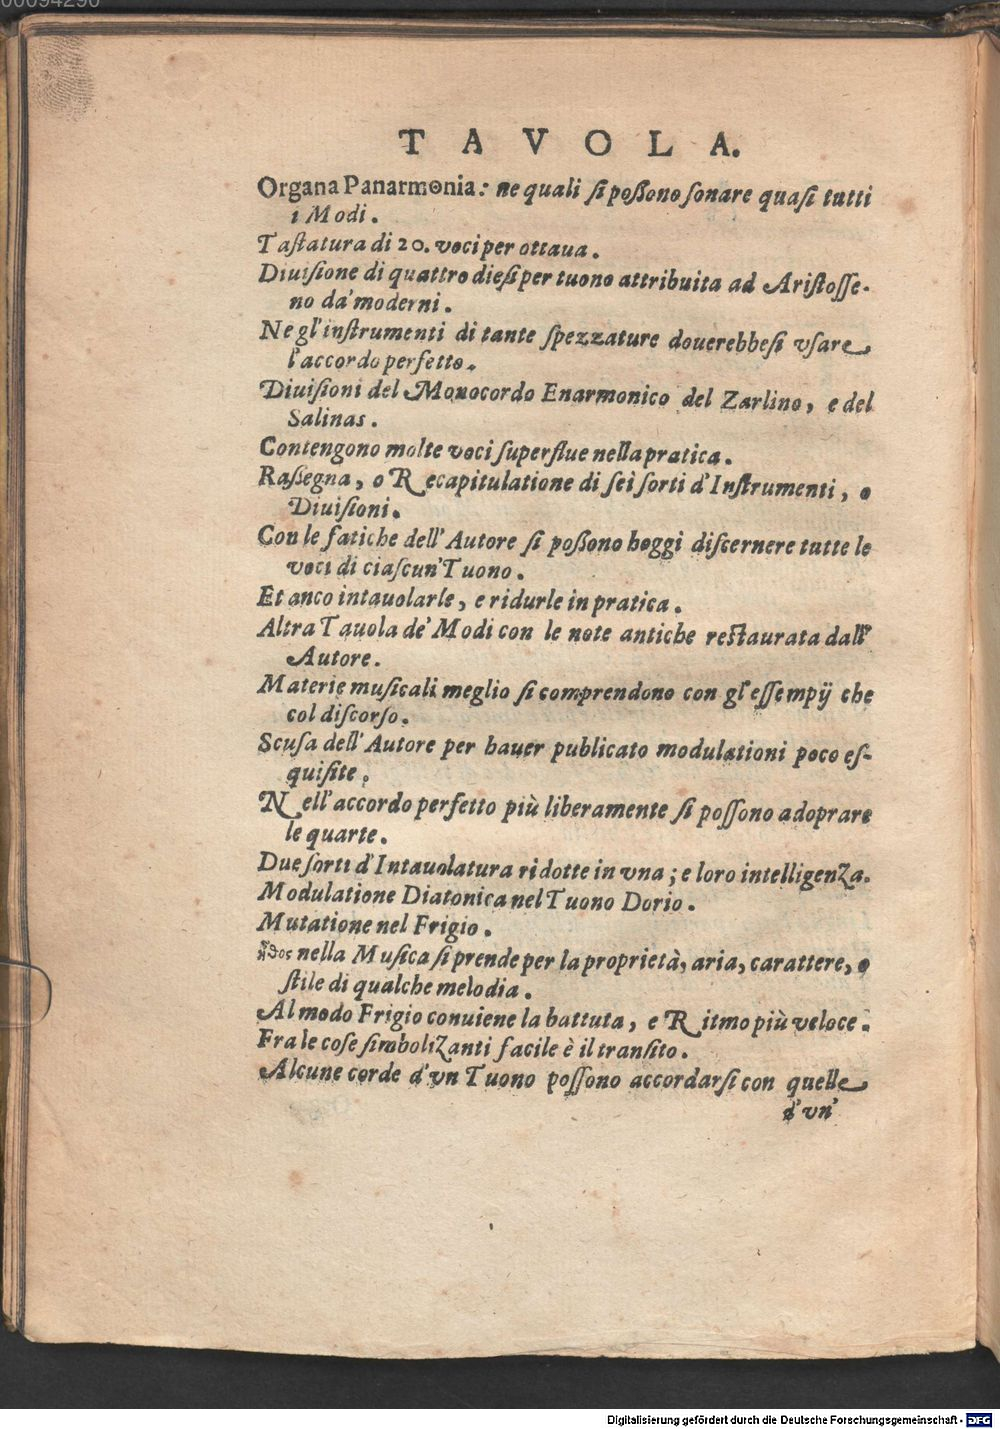 00094290
TAVOLA.
Organa Panarmonia: ne quali ſi poßono ſonare quaſi tutti
i Modi.
Taſtatura di 20. voci per ottaua.
Diuiſione di quattro dieſi per tuono attribuita ad Ariſtoſſe-
no da' moderni.
Ne gl'inſtrumenti di tante ſpezzature douerebbeſi vſare
l'accordo perfetto.
Diuiſioni del Monocordo Enarmonico del Zarlino, e del
Salinas.
Contengono molte voci ſuperflue nella pratica.
Raßegna, o Recapitulatione di ſei ſorti d'Inſtrumenti, o
Diuiſioni.
Con le fatiche dell'Autore ſi poßono hoggi diſcernere tutte le
voci di ciaſcun'Tuono.
Et anco intauolarle, e ridurle in pratica.
Altra Tauola de' Modi con le note antiche reſtaurata dall'
Autore.
Materie muſicali meglio ſi comprendono con gl'eſſempij che
col diſcorſo.
Scuſa dell'Autore per hauer publicato modulationi poco eſ-
quiſite.
Nell'accordo perfetto più liberamente ſi poſſono adoprare
le quarte.
Due ſorti d'Intauolatura ridotte in vna; e loro intelligenza.
Modulatione Diatonica nel Tuono Dorio.
Mutatione nel Frigio.
ἦθος nella Muſica ſi prende per la proprietà, aria, carattere, o
ſtile di qualche melodia.
Al modo Frigio conuiene la battuta, e Ritmo più veloce.
Fra le coſe ſimbolizanti facile è il tranſito.
Alcune corde d'vn Tuono poſſono accordarſi con quelle
d'vn'
Digitalisierung gefördert durch die Deutsche Forschungsgemeinschaft - DFG